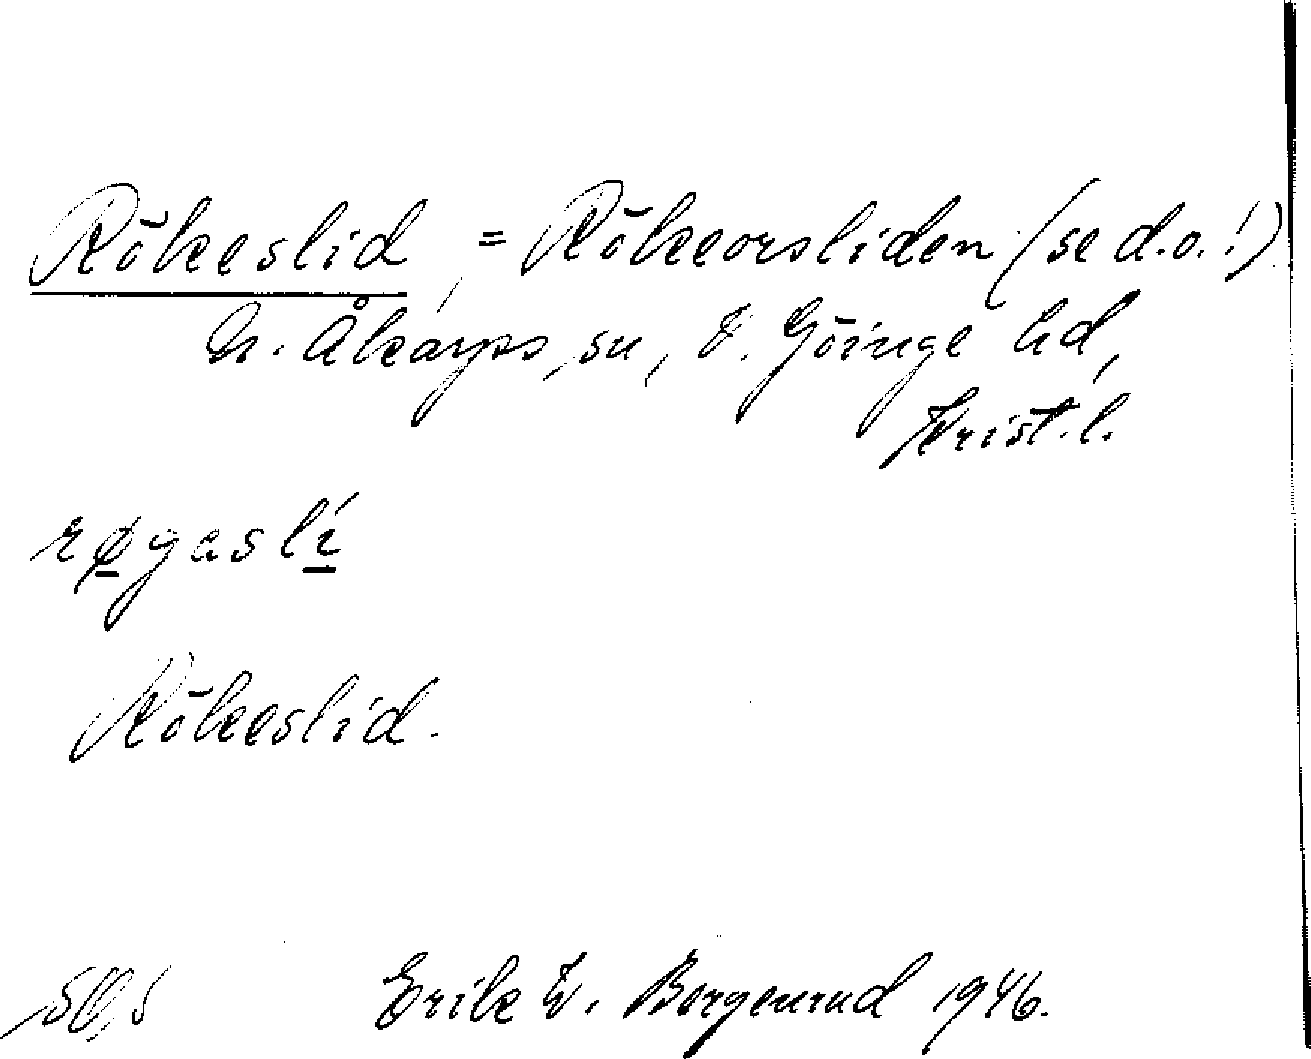 Rökeslid, = Rökeorsliden (se d.o.!)
N. Åkarps sn, V. Göinge hd,
Krist. l.
røgaslí
Rökeslid.
Erik W. Borgenrud 1946.